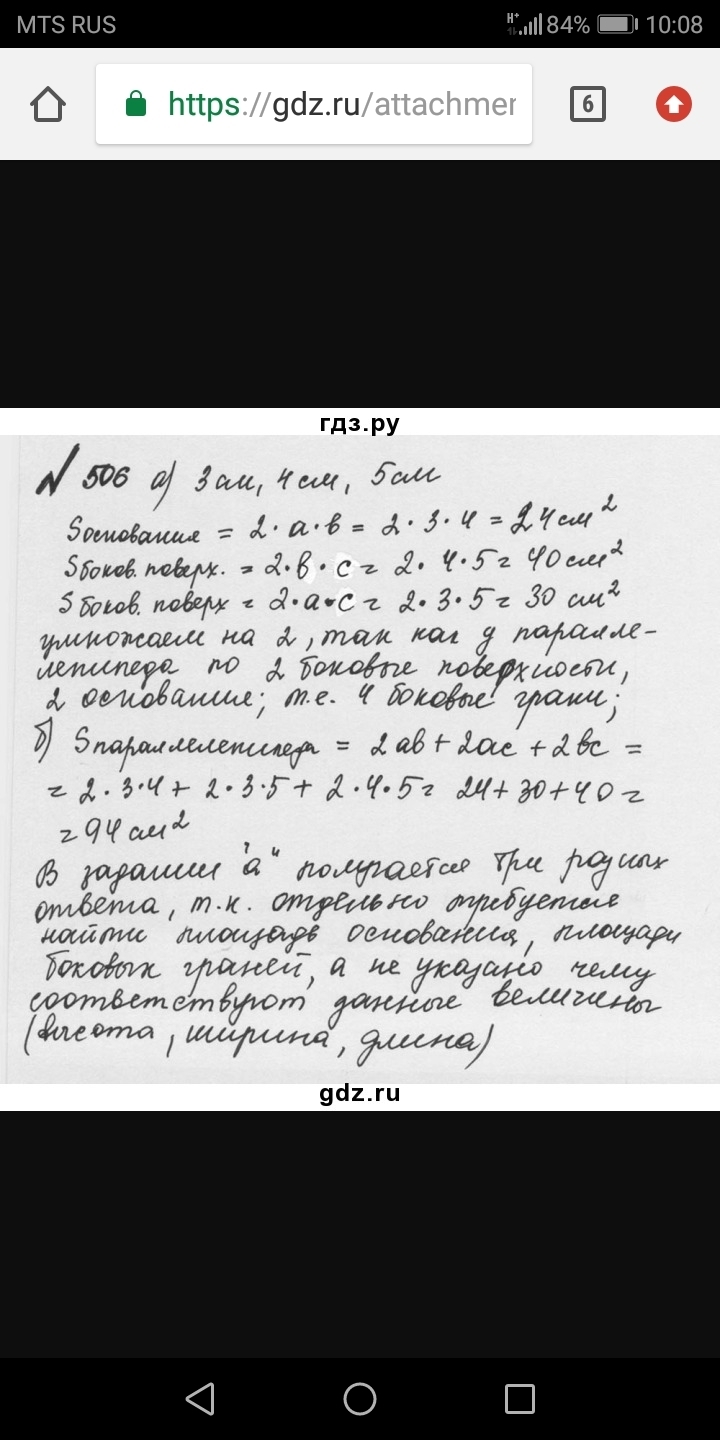 MTS RUS H+ 84% 10:08
https://gdz.ru/attachmer 6
гдз.ру
№ 506 а) 3 см, 4 см, 5 см
Sоснования = 2·а·в = 2·3·4 = 24 см²
Sбоков. поверх. = 2·в·с = 2·4·5 = 40 см²
Sбоков. поверх = 2·а·с = 2·3·5 = 30 см²
умножаем на 2, так как у паралле-
лепипеда по 2 боковые поверхности,
2 основание; т.е. 4 боковые грани;
б) Sпараллелепипеда = 2ав + 2ас + 2вс =
= 2·3·4 + 2·3·5 + 2·4·5 = 24 + 30 + 40 =
= 94 см²
В задании "а" получается три разных
ответа, т.к. отдельно требуется
найти площадь основания, площади
боковых граней, а не указано чему
соответствуют данные величины
(высота, ширина, длина)
gdz.ru